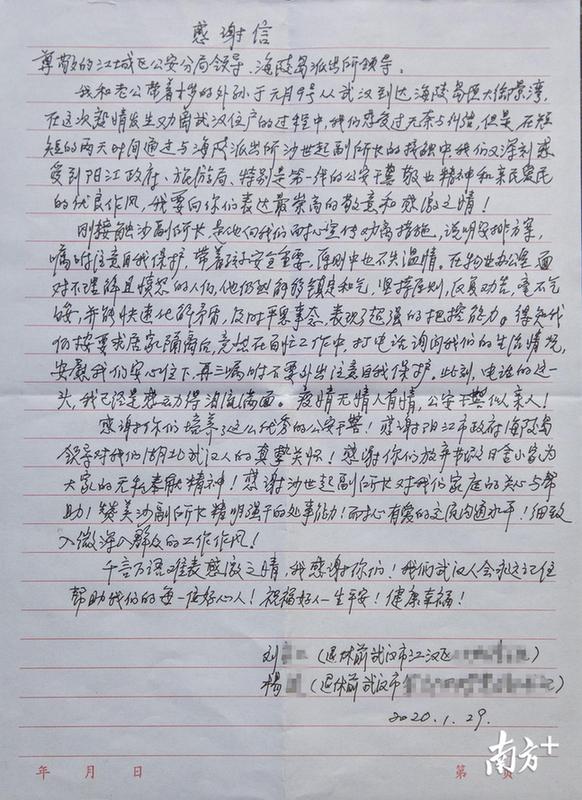 感谢信
尊敬的江城区公安分局领导、海陵岛派出所领导:
我和老公带着十岁的外孙于元月9号从武汉到达海陵岛恒大御景湾,
在这次疫情发生劝离武汉住户的过程中,我们感受过无奈与纠结,但是在短
短的两天时间通过与海陵派出所沙世起副所长的接触中我们又深刻感
受到阳江政府、旅游局、特别是第一线的公安干警敬业精神和亲民爱民
的优良作风,我要向你们表达最崇高的敬意和感激之情!
刚接触沙副所长是他向我们耐心宣传劝离措施,说明安排方案,
嘱咐注意自我保护,带着孩子安全重要,原则中也不失温情。在物业办公室面
对不理解且愤怒的人们,他仍然能够镇定和气,坚持原则,反复劝慰,毫不气
馁,并能快速化解矛盾,及时平息事态,表现了超强的把控能力。得知我
们按要求居家隔离后,竟然在百忙工作中,打电话询问我们的生活情况,
安慰我们安心住下,再三嘱咐不要外出注意自我保护。此刻,电话的这一
头,我已经是感动得泪流满面。疫情无情人有情,公安干警似亲人!
感谢你们培养了这么优秀的公安干警!感谢阳江市政府海陵岛
领导对我们湖北武汉人的真挚关怀!感谢你们放弃节假日舍小家为
大家的无私奉献精神!感谢沙世起副所长对我们家庭的关心与帮
助!赞美沙副所长精明强干的处事能力!耐心有爱的交流沟通水平!细致
入微深入群众的工作作风!
千言万语难表感激之情,我感谢你们!我们武汉人会永远记住
帮助我们的每一位好心人!祝福好人一生平安!健康幸福!
刘 (退休前武汉市江汉区 )
杨 (退休前武汉市 )
2020.1.29.
年 月 日 第 页
南方+